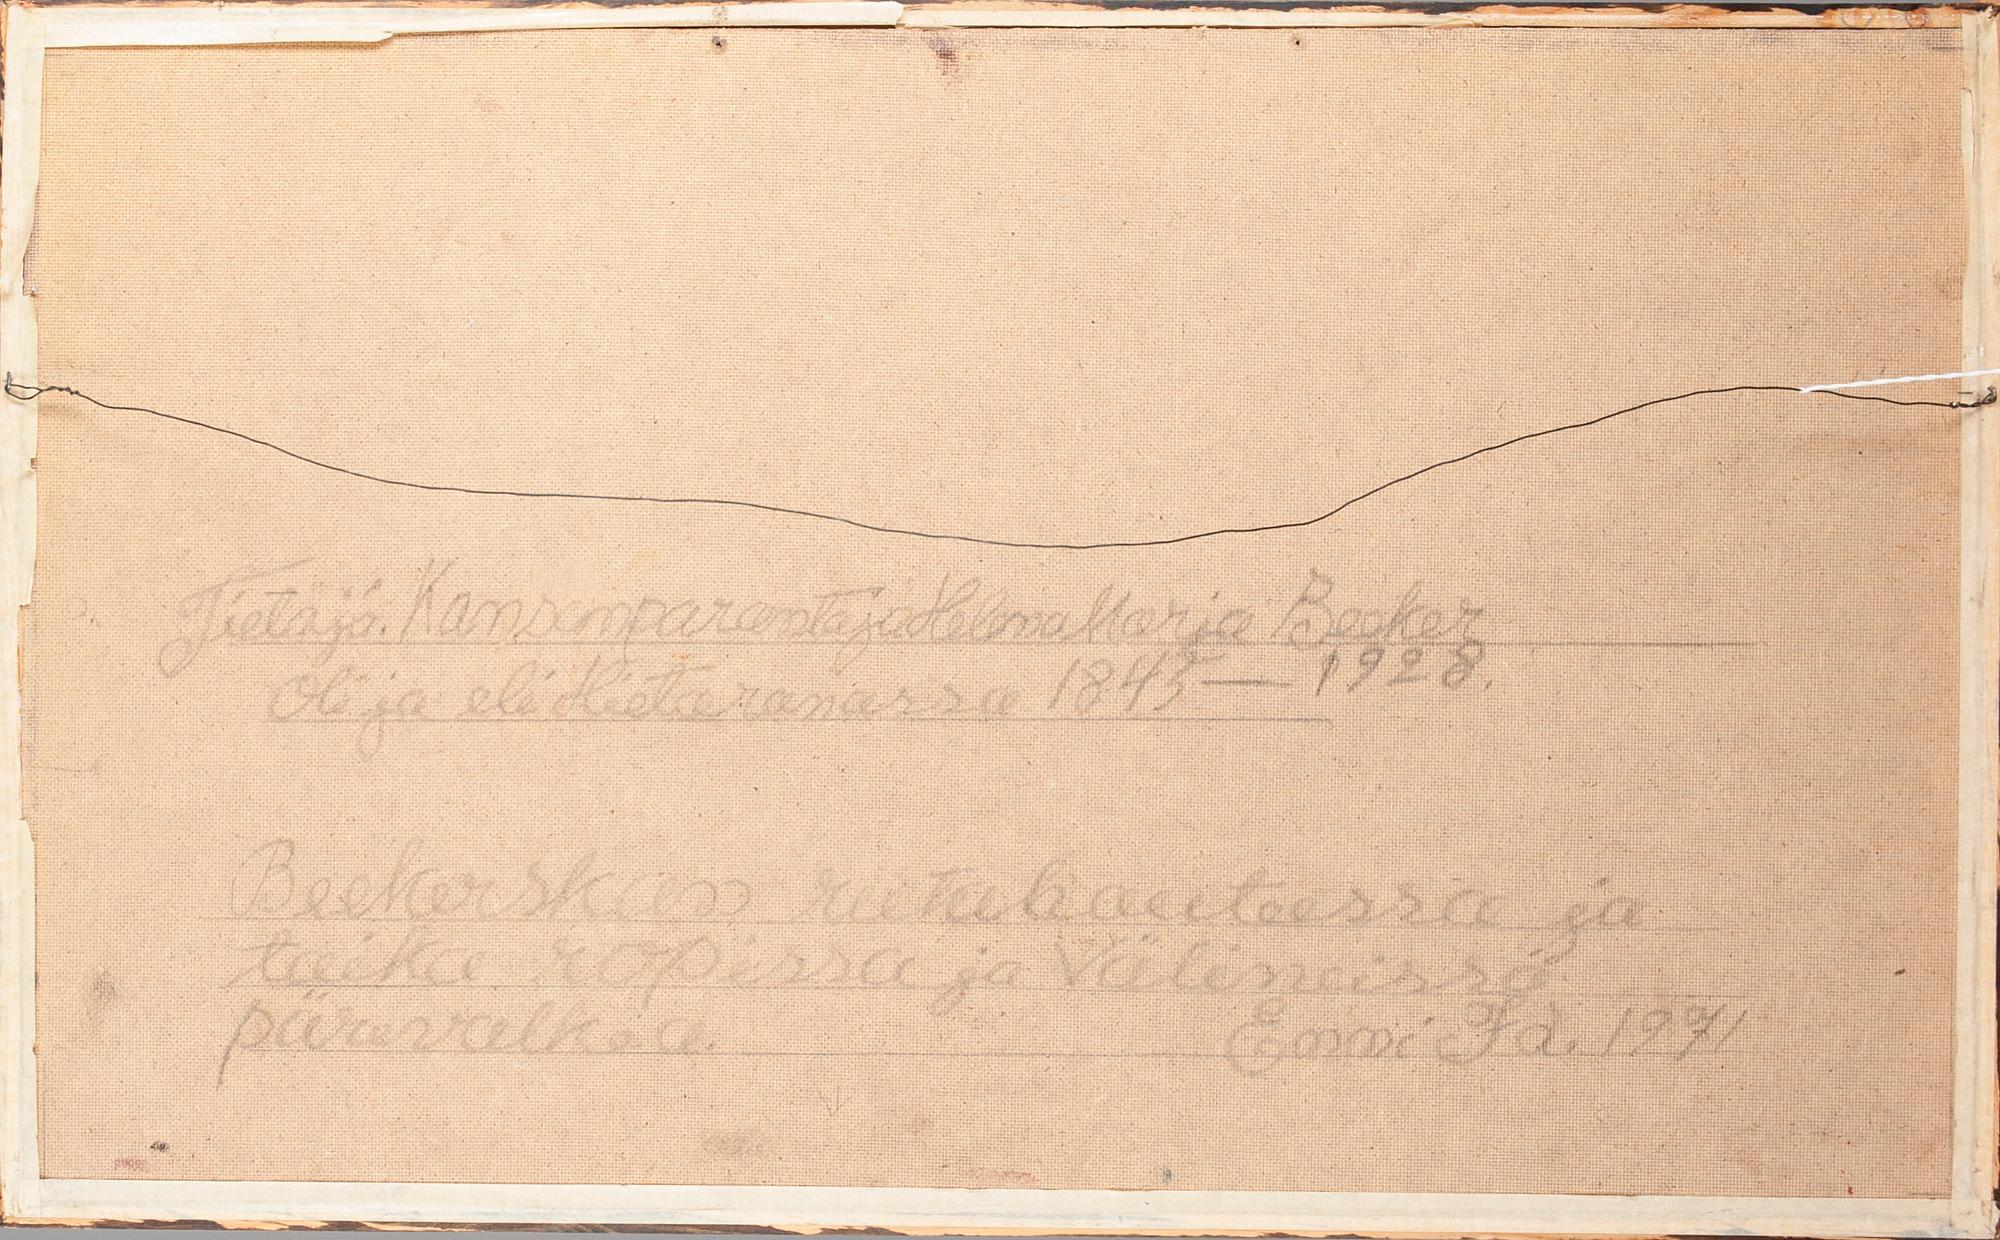 Tietäjä. Kansanparantaja Helena Marja Beeker
Oli ja eli Hietaranassa 1845 — 1928.
Beekerskan rutuhauteessa ja
taika ropissa ja Välineissä
päruvalkea. Enni Id. 1971